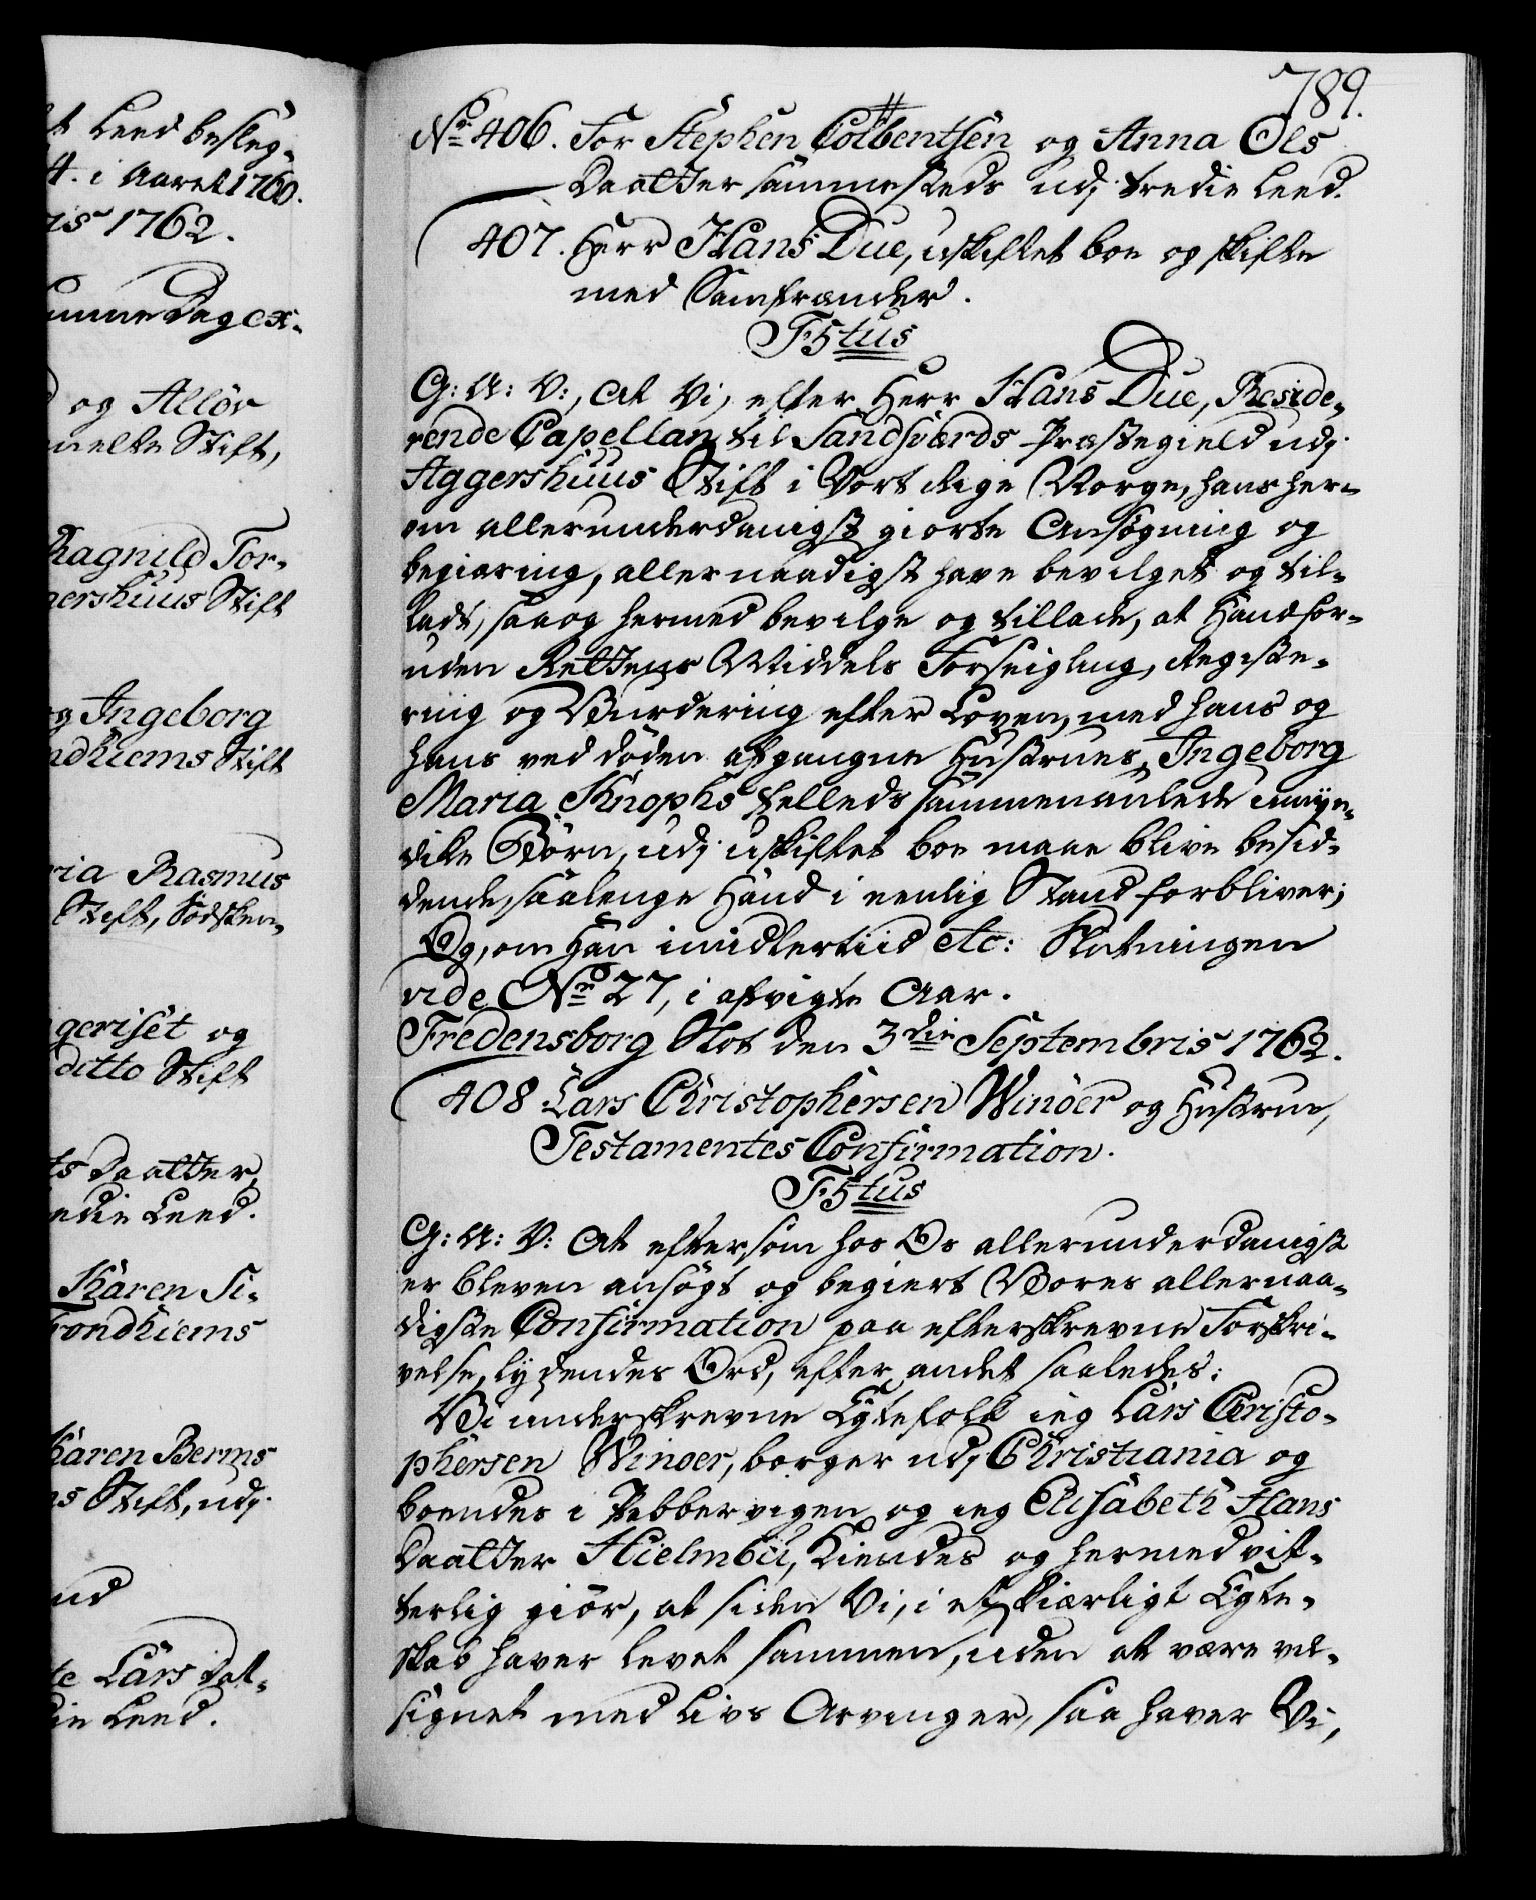 t Leed besleg-
4. i Aaret 1760.
ris 1762.
Samme Dag ex-
og Allör
melte Stift,
Ragnild Tor-
gershuus Stift
og Ingeborg
ndhiems Stift
ria Rasmus
Stift, Södsken-
geriset og
ditto Stift
ts Daatter,
redie Leed.
Karen Si-
Trondhiems
Karen Berms
ns Stift, udj
nd
te Lars Dat-
die Leed.
789.
No 406. For Stephen Colbentsen og Anna Ols
Daatter sammesteds udj tredie Leed.
407. Herr Hans Due, uskiftet boe og skifte
med Samfrænder.
F 5tus
G: A: V:, At Vi, efter Herr Hans Due, Reside-
rende Capellan til Sandsværds Præstegield udj
Aggershuus Stift i Vort Rige Norge, hans her-
om allerunderdanigst giorte Ansøgning og
begiæring, allernaadigst have bevilget og til-
ladt, saa og hermed bevilge og tillade, at Hand for-
uden Rettens Middels Forseigling, Registe-
ring og Vurdering efter Loven, med hans og
hans ved döden afgangne Hustrues, Ingeborg
Maria Knophs fælleds sammenavlede umyn-
dike Börn, udj uskiftet boe maae blive besid-
dende, saalenge Hand i eenlig Stand forbliver;
Og, om Han imidlertiid etc: Slutningen
vide No 27, i afvigte Aar.
Fredensborg Slot den 3die Septembris 1762.
408 Lars Christophersen Winöer og Hustrue,
Testamentes Confirmation.
F 5tus
G: A: V: At eftersom hos Os allerunderdanigst
er bleven ansögt og begiert Vores allernaa-
digste Confirmation paa efterskrevne Forskri-
velse, lydendes Ord, efter andet saaledes:
Vi underskrevne Egtefolk ieg Lars Christo-
phersen Winoer, borger udj Christiania og
boendes i Pebbervigen og ieg Elisabeth Hans
Daatter Hielmbü, Kiendes og hermed vit-
terlig giör, at siden Vi, i et kiærligt Egte-
skab haver levet sammen, uden at være vel-
signet med Livs Arvinger, saa haver Vi,